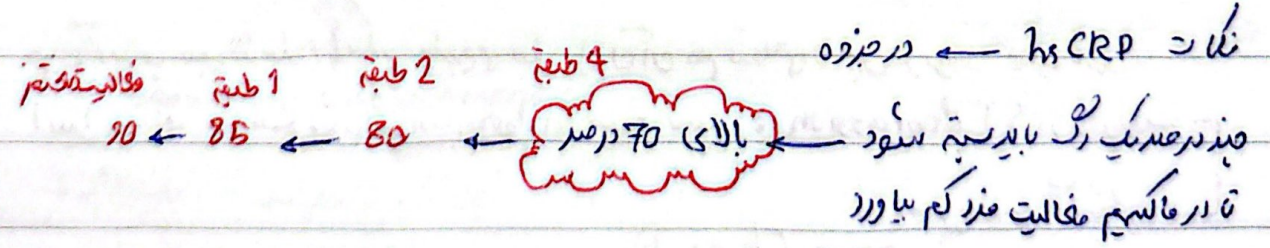 نکات hsCRP ← در جزوه
4 طبقه 2 طبقه 1 طبقه فعالیت مختصر
چند درصد یک رگ باید بسته شود ← بالای 70 درصد ← 80 ← 85 ← 90
تا در ماکسیمم فعالیت فرد کم بیاورد